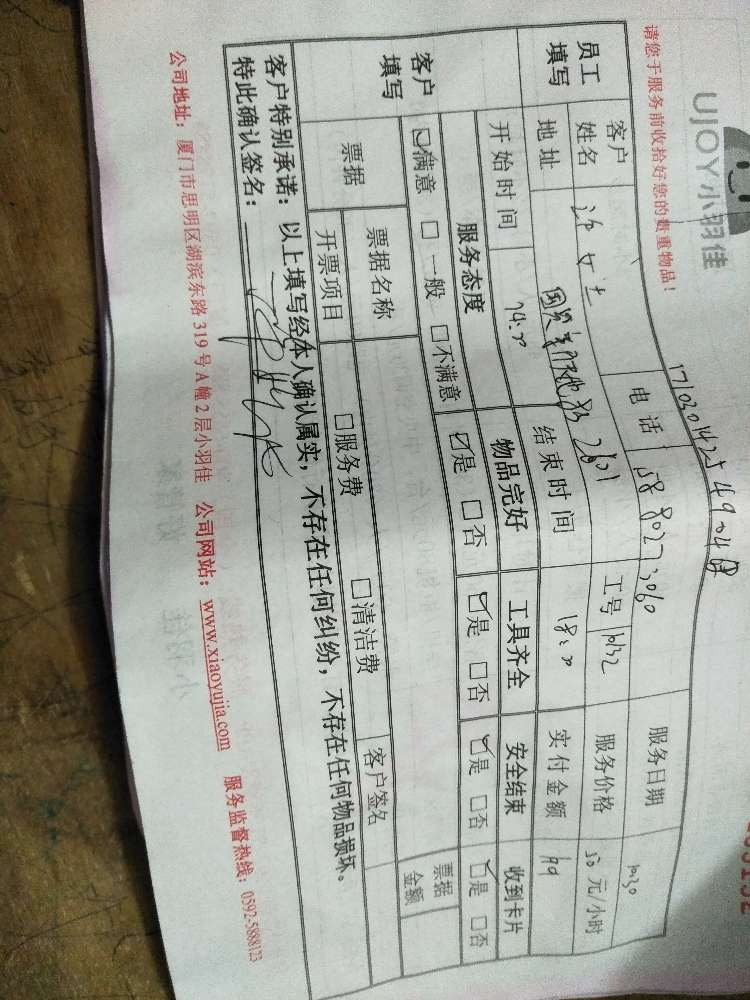 UJOY小羽佳
请您于服务前收拾好您的贵重物品！
员工填写
客户姓名 电话 服务日期 10.30
地址 2601 工号 1032 服务价格 50 元/小时
开始时间 14:30 结束时间 18:30 实付金额 199
客户填写
服务态度 物品完好 工具齐全 安全结束 收到卡片
☑满意 □一般 □不满意 ☑是 □否 ☑是 □否 ☑是 □否 ☑是 □否
票据 票据名称 票据金额
开票项目 □服务费 □清洁费 客户签名
客户特别承诺：以上填写经本人确认属实，不存在任何纠纷，不存在任何物品损坏。
特此确认签名：
公司地址：厦门市思明区湖滨东路319号A幢2层小羽佳 公司网站：www.xiaoyujia.com 服务监督热线：0592-5888123